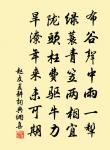 布谷声中雨一犁
绿蓑青笠两相宜
陇头柱费驱牛力
旱潦年来未可期
赵友直耕词典网集